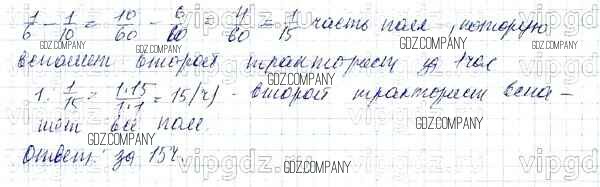 1/6 - 1/10 = 10/60 - 6/60 = 4/60 = 1/15 часть поля, которую
вспашет второй тракторист за 1 час
1 : 1/15 = 1·15/1·1 = 15(ч) - второй тракторист вспа-
шет всё поле.
Ответ: за 15ч.
GDZ.COMPANY
GDZ.COMPANY
GDZ.COMPANY
GDZ.COMPANY
GDZ.COMPANY
GDZ.COMPANY
vipgdz.ru
vipgdz